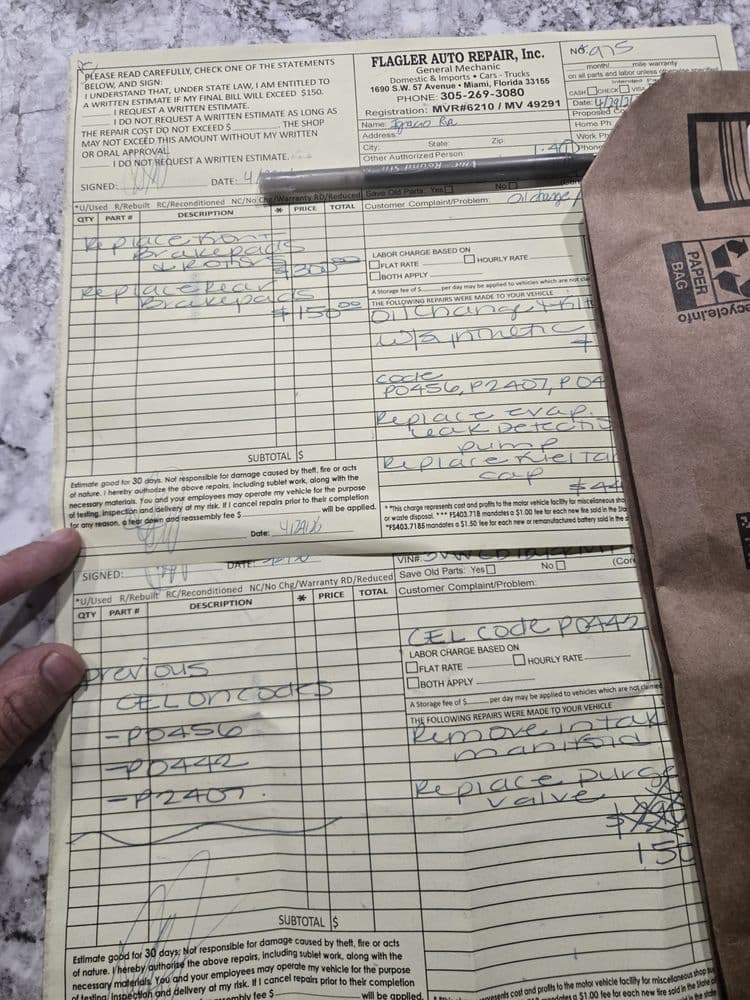 PLEASE READ CAREFULLY, CHECK ONE OF THE STATEMENTS
BELOW, AND SIGN:
I UNDERSTAND THAT, UNDER STATE LAW, I AM ENTITLED TO
A WRITTEN ESTIMATE IF MY FINAL BILL WILL EXCEED $150.
I REQUEST A WRITTEN ESTIMATE.
I DO NOT REQUEST A WRITTEN ESTIMATE AS LONG AS
THE REPAIR COST DO NOT EXCEED $ THE SHOP
MAY NOT EXCEED THIS AMOUNT WITHOUT MY WRITTEN
OR ORAL APPROVAL
I DO NOT REQUEST A WRITTEN ESTIMATE.
SIGNED: DATE: 4
FLAGLER AUTO REPAIR, Inc.
General Mechanic
Domestic & Imports • Cars - Trucks
1690 S.W. 57 Avenue • Miami, Florida 33155
PHONE: 305-269-3080
Registration: MVR#6210 / MV 49291
Name:
Address:
City: State: Zip
Other Authorized Person:
No. 975
month/ mile warranty
on all parts and labor unless otherwise specified
CASH CHECK VISA
Date: 4/29/2
Proposed Co
Home Ph
Work Ph
Phone
*U/Used R/Rebuilt RC/Reconditioned NC/No Chg/Warranty RD/Reduced
Save Old Parts: Yes No
QTY PART # DESCRIPTION * PRICE TOTAL
Customer Complaint/Problem: Oil change /
Replace Front
Brakepads
& Rotors $300.00
Replace Rear
Brakepads
$150.00
LABOR CHARGE BASED ON
FLAT RATE HOURLY RATE
BOTH APPLY
A Storage fee of $ per day may be applied to vehicles which are not cla
THE FOLLOWING REPAIRS WERE MADE TO YOUR VEHICLE
Oil Change + Filt
w/Synthetic
code
P0456, P2407, P04
Replace evap.
Leak Detectio
pump
Replace Fuel Ta
cap
$44
SUBTOTAL $
Estimate good for 30 days. Not responsible for damage caused by theft, fire or acts
of nature. I hereby authorize the above repairs, including sublet work, along with the
necessary materials. You and your employees may operate my vehicle for the purpose
of testing, inspection and delivery at my risk. If I cancel repairs prior to their completion
for any reason, a tear down and reassembly fee $ will be applied.
Date: 4/29/26
*This charge represents cost and profits to the motor vehicle facility for miscellaneous shop
or waste disposal. *** FS403.718 mandates a $1.00 fee for each new tire sold in the Sta
*FS403.7185 mandates a $1.50 fee for each new or remanufactured battery sold in the s
SIGNED: DATE:
VIN#:
*U/Used R/Rebuilt RC/Reconditioned NC/No Chg/Warranty RD/Reduced
Save Old Parts: Yes No
QTY PART # DESCRIPTION * PRICE TOTAL
Customer Complaint/Problem:
CEL code P0442
previous
CEL on codes
-P0456
-P0442
-P2407
LABOR CHARGE BASED ON
FLAT RATE HOURLY RATE
BOTH APPLY
A Storage fee of $ per day may be applied to vehicles which are not claimed
THE FOLLOWING REPAIRS WERE MADE TO YOUR VEHICLE
Remove intak
manifold
Replace purge
valve
150
SUBTOTAL $
Estimate good for 30 days. Not responsible for damage caused by theft, fire or acts
of nature. I hereby authorize the above repairs, including sublet work, along with the
necessary materials. You and your employees may operate my vehicle for the purpose
of testing, inspection and delivery at my risk. If I cancel repairs prior to their completion
mbly fee $ will be applied.
resents cost and profits to the motor vehicle facility for miscellaneous shop
a $1.00 fee for each new tire sold in the State
PAPER
BAG
recycle.info